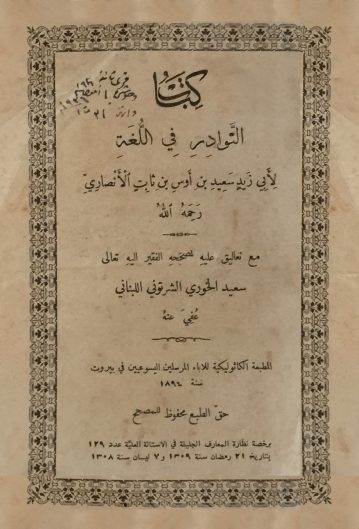 كتاب
النَّوادِرِ فِي اللُّغَةِ
لِأَبِي زَيْدٍ سَعِيدِ بْنِ أَوْسِ بْنِ ثَابِتٍ الْأَنْصَارِيِّ
رَحِمَهُ اللهُ
مع تعاليق عليه لمصححه الفقير اليه تعالى
سعيد الخوري الشرتوني اللبناني
عُفِيَ عنهُ
المطبعة الكاثوليكية للاباء المرسلين اليسوعيين في بيروت
سنة ١٨٩٤
حقّ الطبع محفوظ للمصحح
برخصة نظارة المعارف الجليلة في الاستانة العليّة عدد ١٢٩
بتاريخ ٢١ رمضان سنة ١٣٠٩ و ٧ نيسان سنة ١٣٠٨